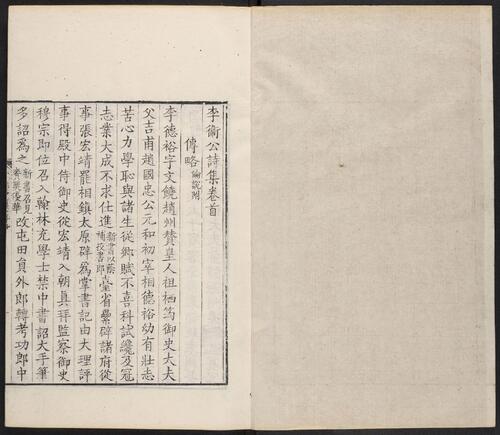 李衛公詩集卷首
傳略論說附
李德裕字文饒趙州贊皇人祖栖筠御史大夫
父吉甫趙國忠公元和初宰相德裕幼有壯志
苦心力學恥與諸生從鄉賦不喜科試纔及冠
志業大成不求仕進新書以蔭補校書郎臺省累辟諸府從
事張宏靖罷相鎮太原辟爲掌書記由大理評
事得殿中侍御史從宏靖入朝真拜監察御史
穆宗即位召入翰林充學士禁中書詔大手筆
多詔爲之新書召見賚獎優華改屯田員外郎轉考功郎中